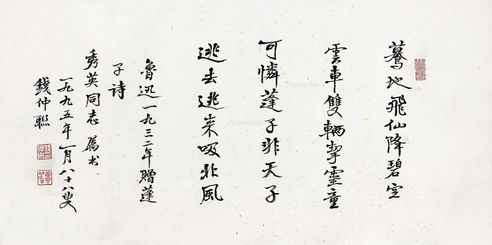 驀地飛仙降碧空
雲車雙輛挈靈童
可憐蓬子非天子
逃去逃來吸北風
魯迅一九三二年贈蓬
子詩
秀英同志屬書
一九九五年一月八十八叟
錢仲聯